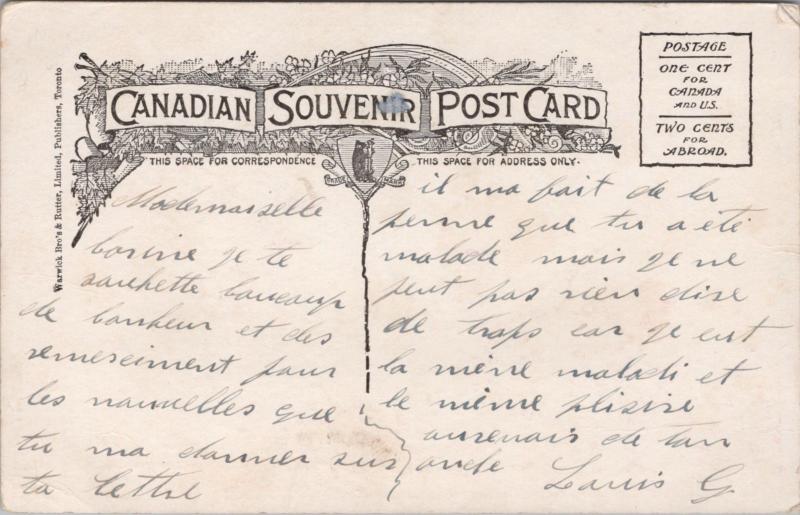 CANADIAN SOUVENIR POST CARD
THIS SPACE FOR CORRESPONDENCE
THIS SPACE FOR ADDRESS ONLY.
POSTAGE
ONE CENT
FOR
CANADA
AND U.S.
TWO CENTS
FOR
ABROAD.
Warwick Bro's & Rutter, Limited, Publishers, Toronto
TRADE MARK
Mademaiselle
je te
souhette baucaup
de bonheur et des
remerciment pour
les nauvelles que
tu ma danner sur
ta lettre
il ma fait de la
penne que tu a été
malade mais je ne
peut pas rien dire
de traps car je eut
la même maladi et
le même plisire
de tan
Lauis G